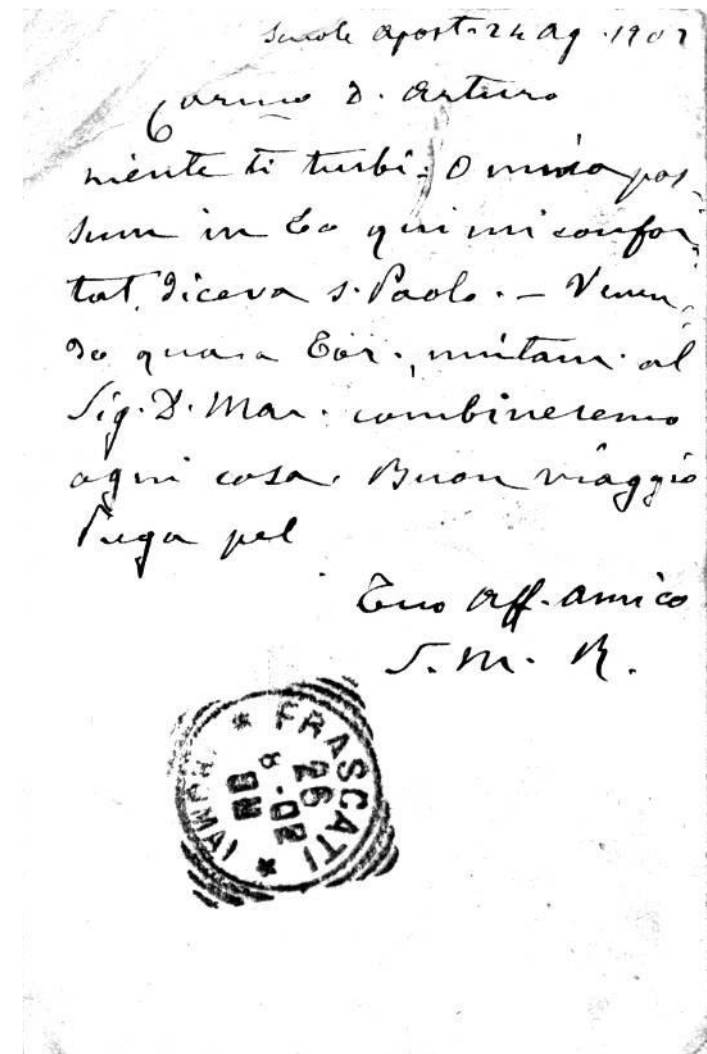 Scuole Apost. 24 Ag. 1902
Carmo D. Arturo
niente ti turbi. Omnia pos-
sum in Eo qui mi confor-
tat, diceva S. Paolo. - Venen-
do quassù al
Sig. D. Mar. combineremo
ogni cosa. Buon viaggio
Prega pel
Tuo Aff. Amico
S. M. R.
* FRASCATI * (ROMA)
26
8 - 02
8M